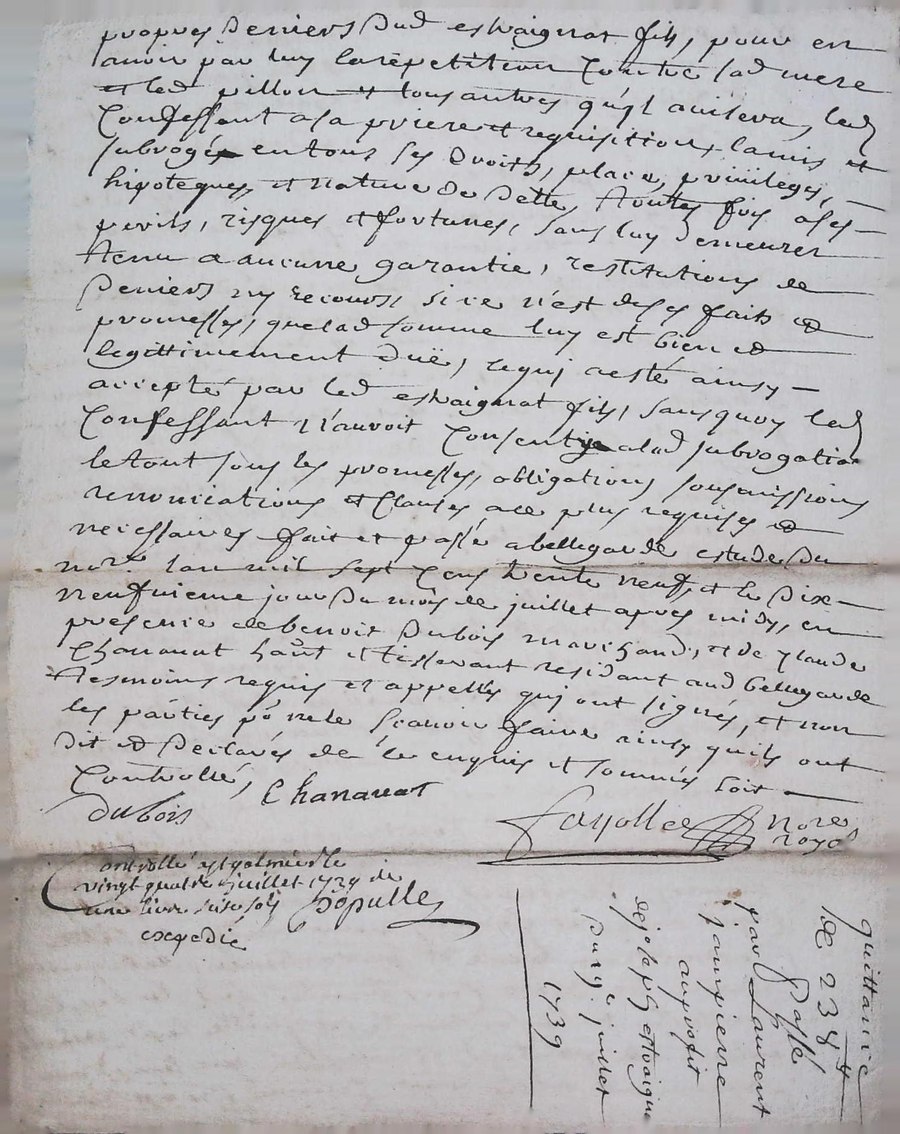 propres deniers dud estvaignat fils, pour en
avoir par luy la repetition contre sad mere
et led pillon et tous autres qu'il avisera, led
Confessant a sa priere et requisition, la mis et
subrogé en tous ses droits, place, privileges,
hipoteques, et nature de dette, toutes fois a ses
perils, risques et fortunes, sans luy demeurer
tenu a aucune garantie, restitutions de
deniers ny recours, si ce n'est de ses faits et
promesses, que lad somme luy est bien et
legittimement duë, ce qui a esté ainsy
accepté par led estvaignat fils, sans quoy led
Confessant n'auroit consenty a lad subrogation
le tout sous les promesses, obligations sousmissions
renonciations et clauses a ce plus requises et
necessaires fait et passé a bellegarde estude du
nore lan mil sept cens trente neuf, et le dix
neufvieme jour du mois de juillet apres midy, en
presence de benoit Dubois marchand, et de Claude
Chanavat haut et tisserant residant aud bellegarde
tesmoins requis et appellés qui ont signés, et non
les parties po ne le scavoir faire ainsy quils ont
dit et declarés de ce enquis et sommés soit
Controllé,
Chanavat
dubois
Fayolle nore
royal
Controllé a st galmier le
vingt quatre juillet 1739 de
une livre seise sols
Dopulle
expedié
quittance
de 238 #
passé
par Laurent
janpierre
au profit
de joseph estvaigna
du 19e juillet
1739